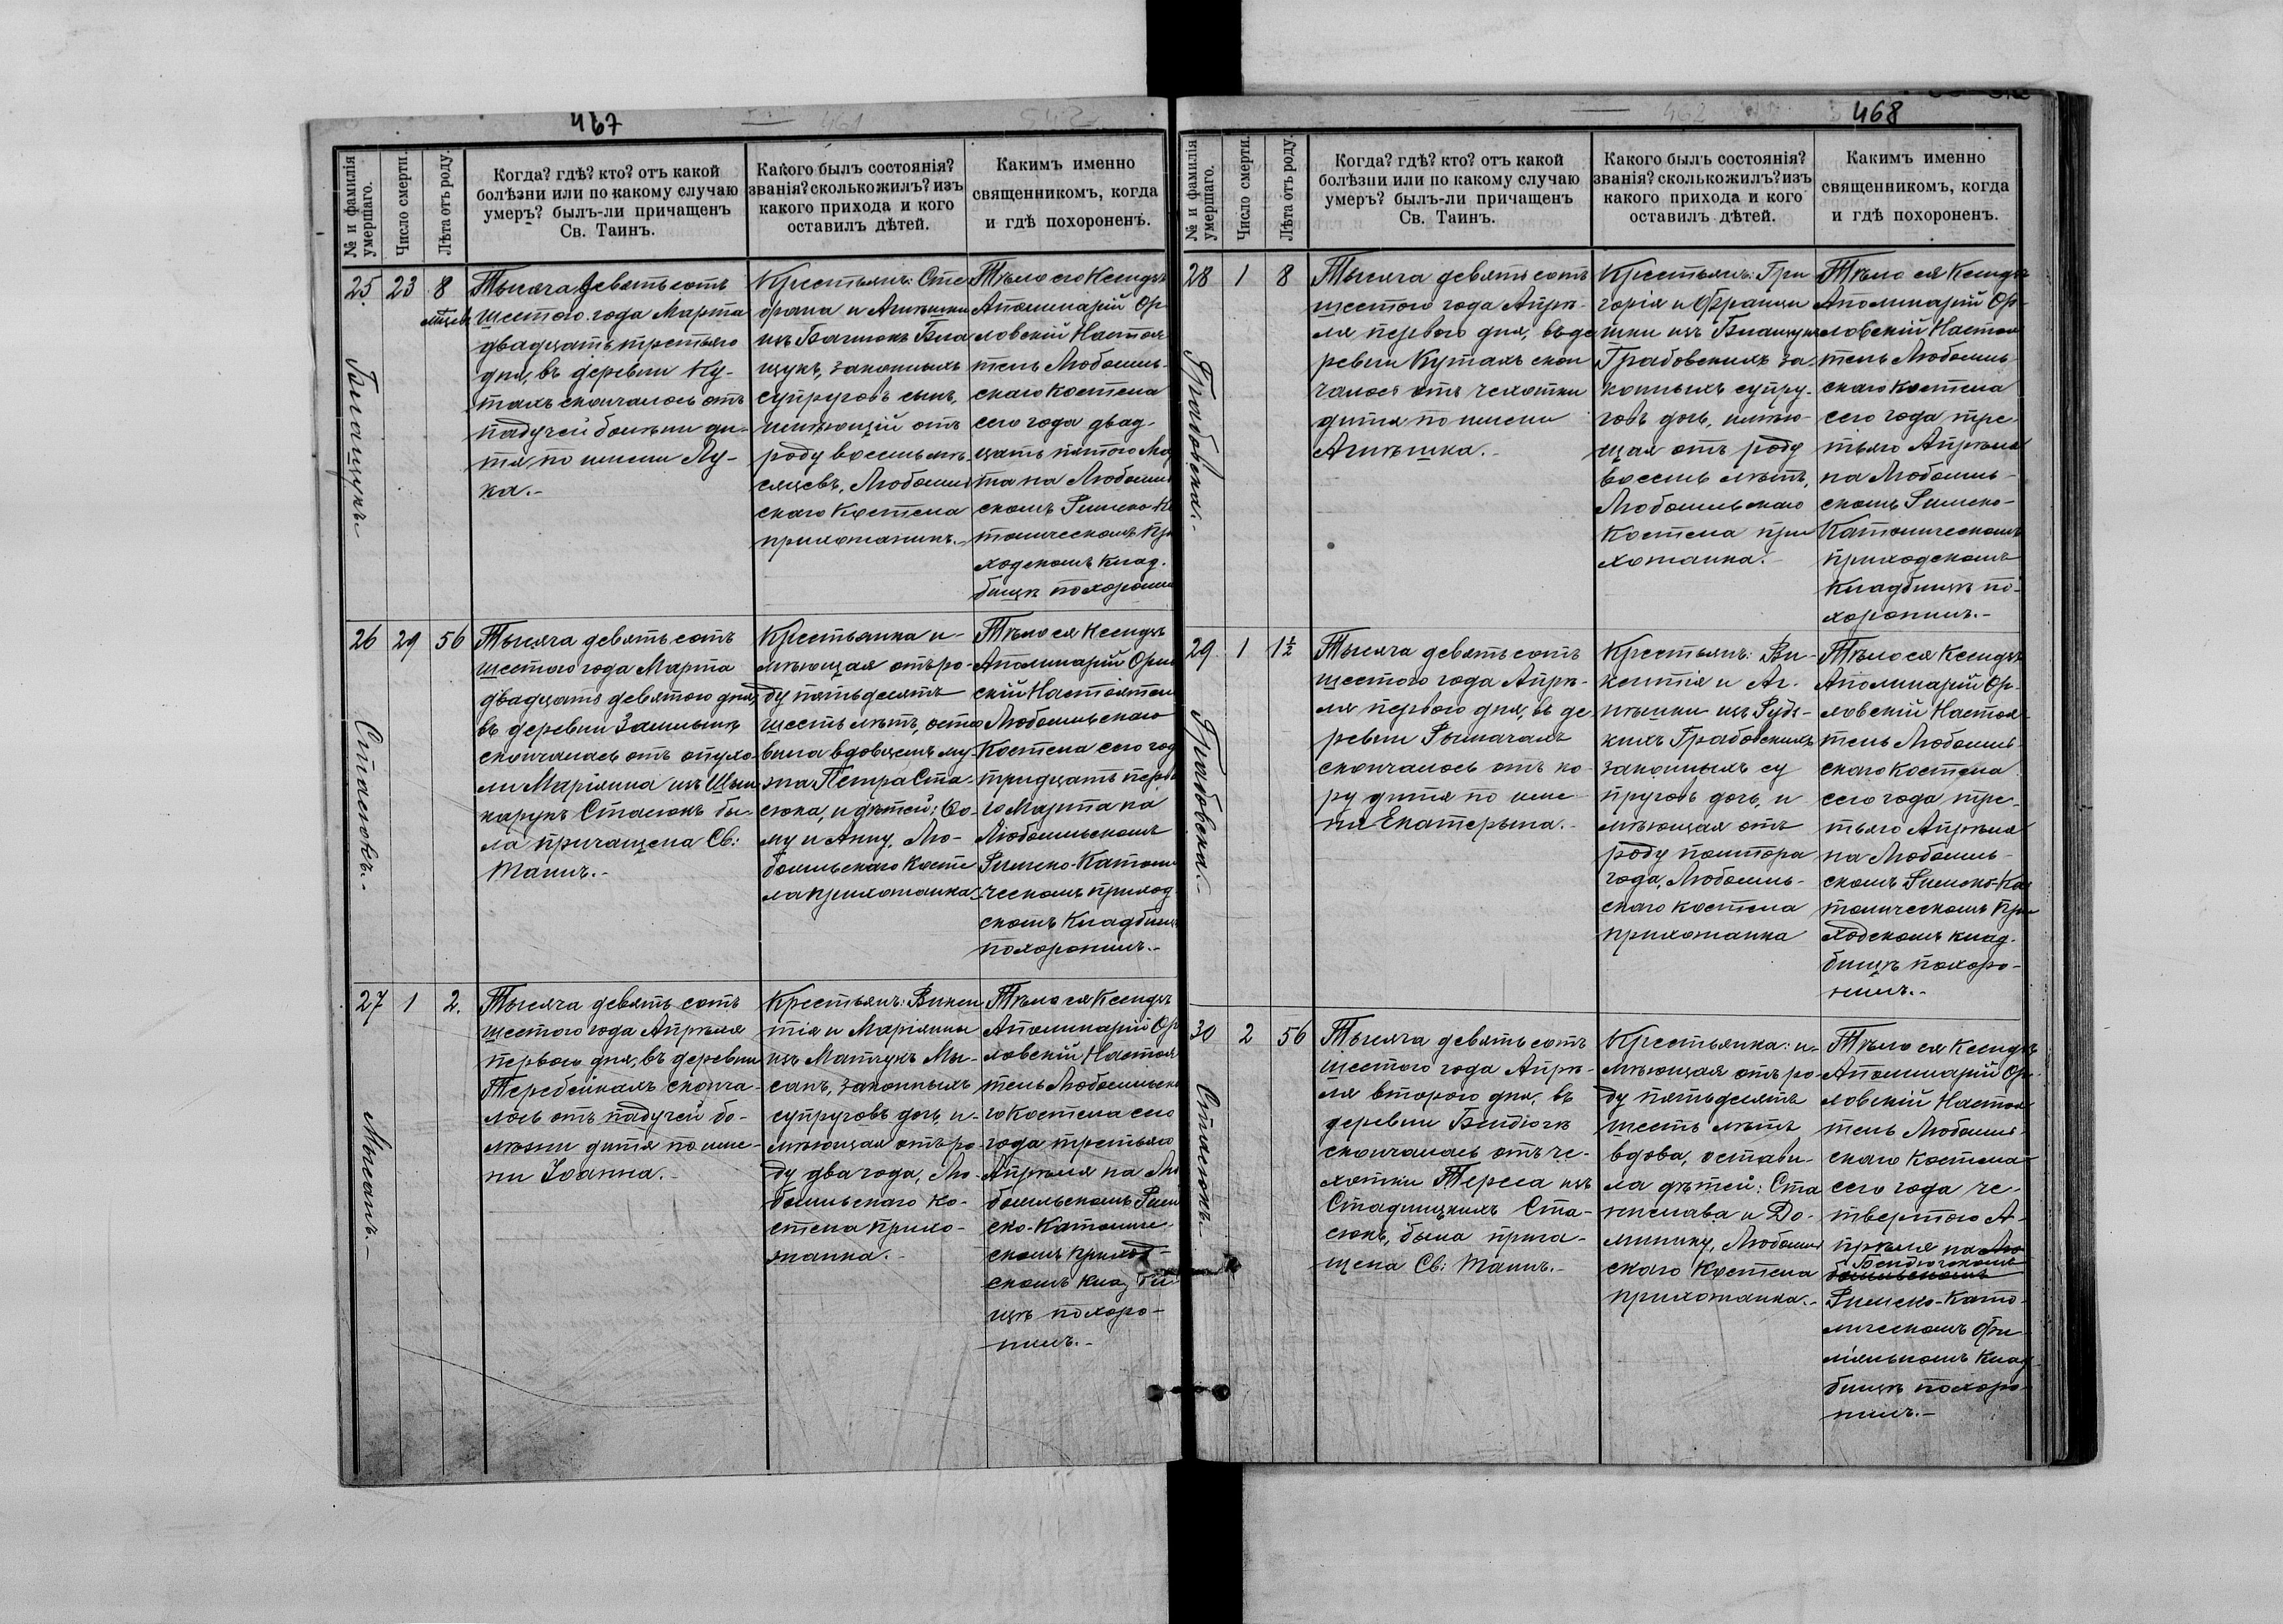 467
№ и фамилія умершаго.
Число смерти.
Лѣта отъ роду.
Когда? гдѣ? кто? отъ какой
болѣзни или по какому случаю
умеръ? былъ-ли причащенъ
Св. Таинъ.
Какого былъ состоянія?
званія? сколько жилъ? изъ
какого прихода и кого
оставилъ дѣтей.
Каким именно
священникомъ, когда
и гдѣ похороненъ.
25
23
8
мѣсяц
Тысяча девятьсотъ
шестого года Марта
двадцать третьяго
дня, въ деревни Ку-
тахъ скончалось отъ
падучей болѣзни ди-
тя, по имени Лу-
ка.-
Крестьянъ: Сте
фана и Агнѣшки
изъ Бла
щукъ, законныхъ
супруговъ сынъ,
имѣющій отъ
роду восемь мѣ-
сяцевъ, Любомль
скаго Костела
прихожанинъ.-
Тѣло его Ксендзъ
Аполинарій Ор-
ловскій Настоя
тель Любомль-
скаго костела
сего года двад-
цать пятого Ма
та на Любомль
скомъ Римско-Ка
толическомъ При
ходскомъ клад-
бищѣ похорони
26
29
56
Стасюкъ.-
Тысяча девятьсотъ
шестого года Марта
двадцать девятого дня,
въ деревни
скончалась отъ опухо-
ли Маріянна изъ
Стасюкъ бы-
ла причащена Св:
Таинъ.-
Крестьянка и-
мѣющая отъ ро-
ду пятьдесятъ
шесть лѣтъ, оста
вила вдовцемъ му-
жа Петра Ста-
сюка, и дѣтей: Ѳо-
му и Анну, Лю-
бомльскаго Косте
ла прихожанка.-
Тѣло ея Ксендзъ
Аполинарій Орлов
скій Настоятель
Любомльскаго
Костела сего год
тридцать перва
го Марта на
Любомльскомъ
Римско-Католи
ческомъ приход
скомъ Кладбищ
похоронилъ.-
27
1
2.
Мысанъ.-
Тысяча девятьсотъ
шестого года Апрѣля
первого дня, въ деревни
Теребейкахъ сконча-
лось отъ падучей бо-
лѣзни дитя по име-
ни Іоанна.-
Крестьянъ: Викен
тія и Маріянны
изъ Матчукъ Мы-
санъ, законныхъ
супруговъ дочь, и-
мѣющая отъ ро-
ду два года, Лю-
бомльскаго ко-
стела прихо-
жанка.-
Тѣло ея Ксендзъ
Аполинарій Ор
ловскій Настоя
тель Любомльска
го Костела сего
года третьяго
Апрѣля на Лю
бомльскомъ Рим
ско-Католиче-
скомъ приход-
скомъ кладби
щѣ похоро-
нилъ.-
468
№ и фамилія умершаго.
Число смерти.
Лѣта отъ роду.
Когда? гдѣ? кто? отъ какой
болѣзни или по какому случаю
умеръ? былъ-ли причащенъ
Св. Таинъ.
Какого былъ состоянія?
званія? сколько жилъ? изъ
какого прихода и кого
оставилъ дѣтей.
Каким именно
священникомъ, когда
и гдѣ похороненъ.
28
1
8
Грабовска.-
Тысяча девятьсотъ
шестого года Апрѣ-
ля первого дня, въ де
ревни Кутахъ скон
чалось отъ чехотки
дитя по имени
Агнѣшка.-
Крестьянъ: Гри
горія и Францы
шки изъ Блащукъ
Грабовскихъ за-
конныхъ супру-
говъ дочь, имѣю-
щая отъ роду
восемь лѣтъ,
Любомльскаго
Костела при
хожанка.-
Тѣло ея Ксендзъ
Аполинарій Ор-
ловскій Настоя
тель Любомль-
скаго Костела
сего года тре-
тьяго Апрѣля
на Любомль-
скомъ Римско-
Католическомъ
приходскомъ
Кладбищѣ по-
хоронилъ.-
29
1
1½
Грабовска.-
Тысяча девятьсотъ
шестого года Апрѣ-
ля первого дня, въ де
ревни Рымачахъ
скончалось отъ ко-
ру дитя по име-
ни Екатерына.-
Крестьянъ: Ви-
кентія и Аг-
нѣшки изъ Рудз-
кихъ Грабовскихъ
законныхъ су
пруговъ дочь, и
мѣющая отъ
роду полтора
года, Любомль-
скаго костела
прихожанка
Тѣло ея Ксендзъ
Аполинарій Ор-
ловскій Настоя-
тель Любомль
скаго костела
сего года тре-
тьяго Апрѣля
на Любомль-
скомъ Римско-Ка
толическомъ При
ходскомъ клад-
бищѣ похоро-
нилъ.-
30
2
56
Стасюкъ.-
Тысяча девятьсотъ
шестого года Апрѣ-
ля второго дня, въ
деревни Бендюгѣ
скончалась отъ че-
хотки Тереса изъ
Стадницкихъ Ста-
сюкъ, была прича-
щена Св: Таинъ.-
Крестьянка: и-
мѣющая отъ ро-
ду пятьдесятъ
шесть лѣтъ
вдова, остави-
ла дѣтей: Ста
нислава и До-
минику, Любомль
скаго Костела
прихожанка.-
Тѣло ея Ксендзъ
Аполинарій Ор-
ловскій Настоя
тель Любомль-
скаго Костела
сего года че-
твертого А-
прѣля на Лю
Бендюгскомъ
бомльскомъ
Римско-Като-
лическомъ фи
ліяльномъ Клад
бищѣ похоро-
нилъ.-